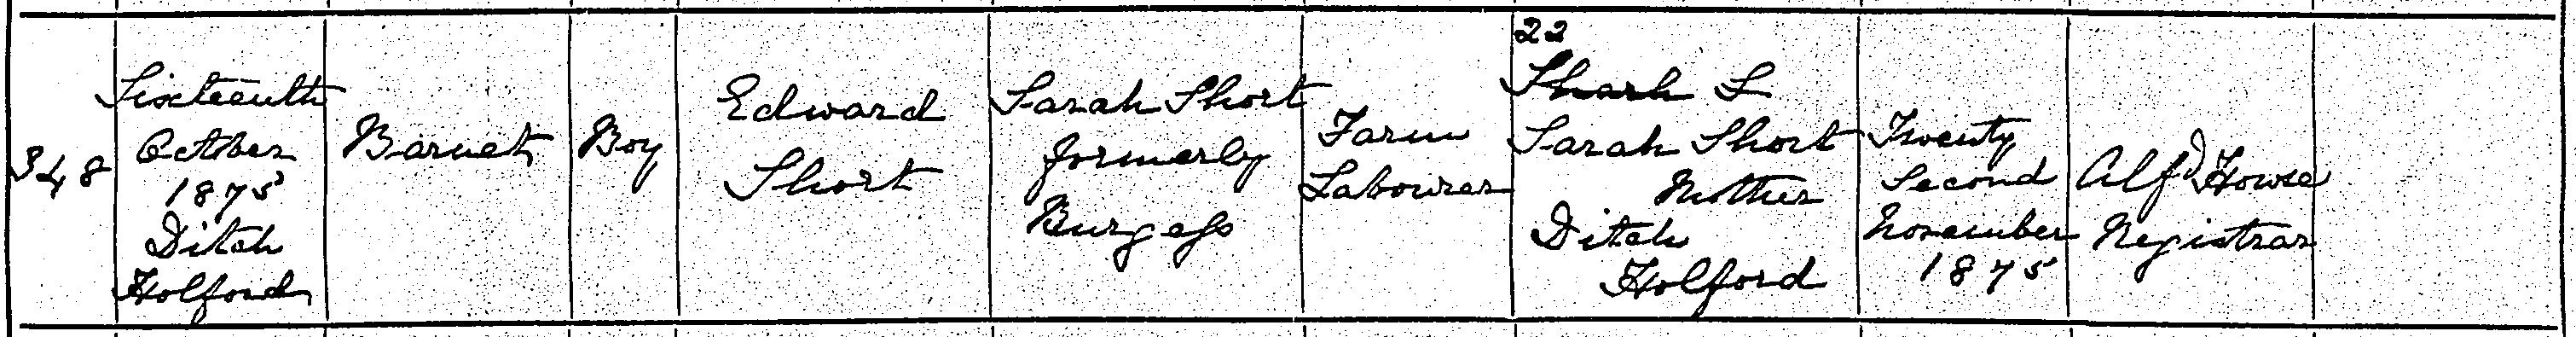 348
Sixteenth
October
1875
Ditch
Holford
Barnet
Boy
Edward
Short
Sarah Short
formerly
Burgess
Farm
Labourer
22
S
Sarah Short
Mother
Ditch
Holford
Twenty
Second
November
1875
Alfd Howse
Registrar